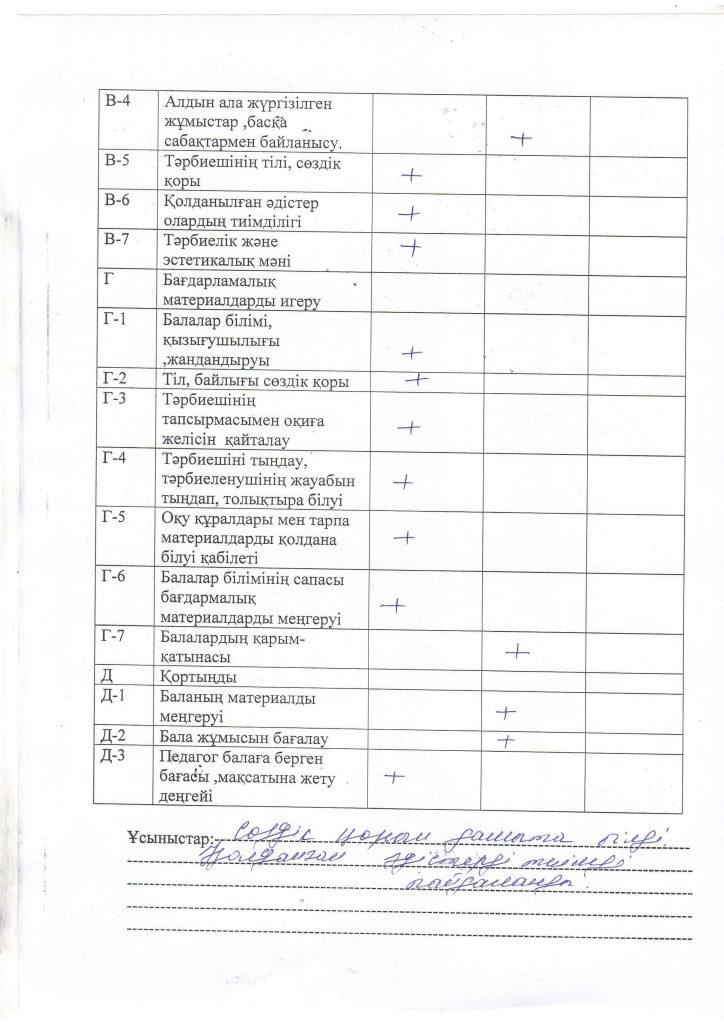 В-4 Алдын ала жүргізілген
жұмыстар ,басқа
сабақтармен байланысу. +
В-5 Тәрбиешінің тілі, сөздік
қоры +
В-6 Қолданылған әдістер
олардың тиімділігі +
В-7 Тәрбиелік және
эстетикалық мәні +
Г Бағдарламалық
материалдарды игеру
Г-1 Балалар білімі,
қызығушылығы
,жандандыруы +
Г-2 Тіл, байлығы сөздік қоры +
Г-3 Тәрбиешінің
тапсырмасымен оқиға
желісін қайталау +
Г-4 Тәрбиешіні тыңдау,
тәрбиеленушінің жауабын
тыңдап, толықтыра білуі +
Г-5 Оқу құралдары мен тарпа
материалдарды қолдана
білуі қабілеті +
Г-6 Балалар білімінің сапасы
бағдармалық
материалдарды меңгеруі +
Г-7 Балалардың қарым-
қатынасы +
Д Қортыңды
Д-1 Баланың материалды
меңгеруі +
Д-2 Бала жұмысын бағалау +
Д-3 Педагог балаға берген
бағасы ,мақсатына жету
деңгейі +
Ұсыныстар: Сөздік қорын дамыта білді
Қолданған әдістерді тиімді
пайдаланды.